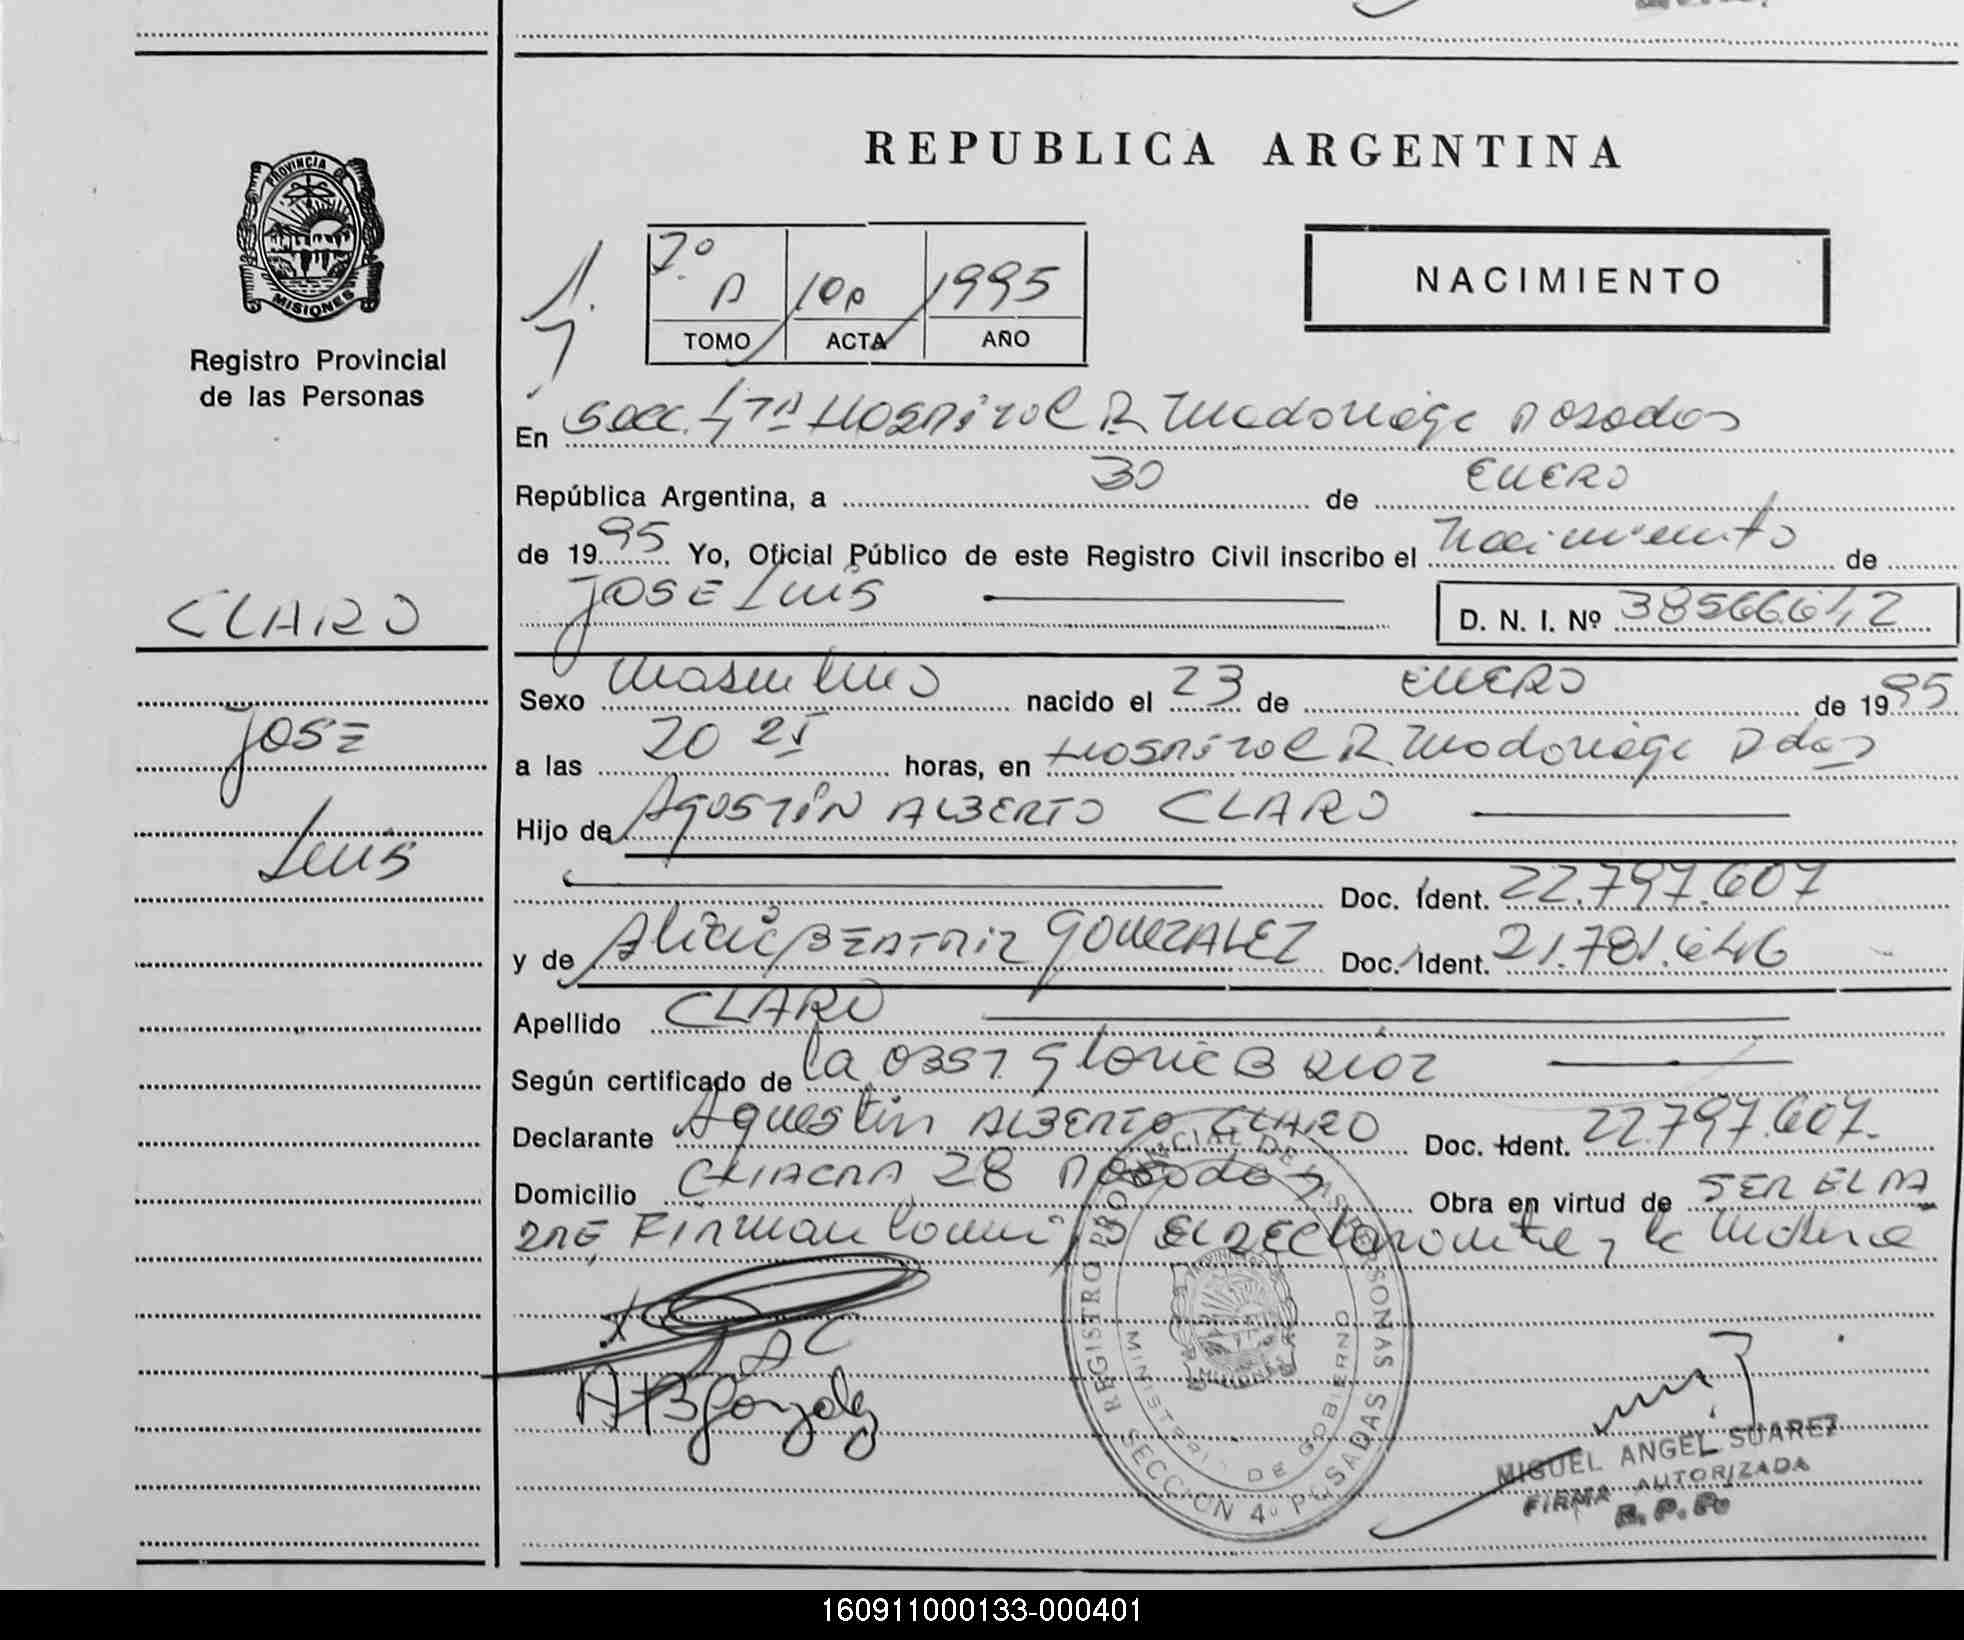 REPUBLICA ARGENTINA
PROVINCIA DE
MISIONES
Registro Provincial
de las Personas
1995
TOMO ACTA AÑO
NACIMIENTO
En Secc. 4TA HOSPITAL R Madariaga Posadas
República Argentina, a 30 de ENERO
de 1995 Yo, Oficial Público de este Registro Civil inscribo el Nacimiento de
JOSE Luis
D. N. I. Nº 38566642
CLARO
JOSE
Luis
Sexo Masculino nacido el 23 de ENERO de 1995
a las 20 25 horas, en HOSPITAL R. Madariaga Pdas
Hijo de AGUSTIN ALBERTO CLARO
Doc. Ident. 22.797.607
y de Alicia BEATRIZ GONZALEZ Doc. Ident. 21.781.646
Apellido CLARO
Según certificado de la OBST Gloria B
Declarante Agustin ALBERTO CLARO Doc. Ident. 22.797.607.
Domicilio CHACRA 28 Posadas Obra en virtud de SER EL PA
DRE, Firman EL DECLarante y la Madre
A B Gonzalez
REGISTRO PROVINCIAL DE LAS PERSONAS
MINISTERIO DE GOBIERNO
SECCION 4º POSADAS
MISIONES
MIGUEL ANGEL SUAREZ
FIRMA AUTORIZADA
R. P. P.
160911000133-000401